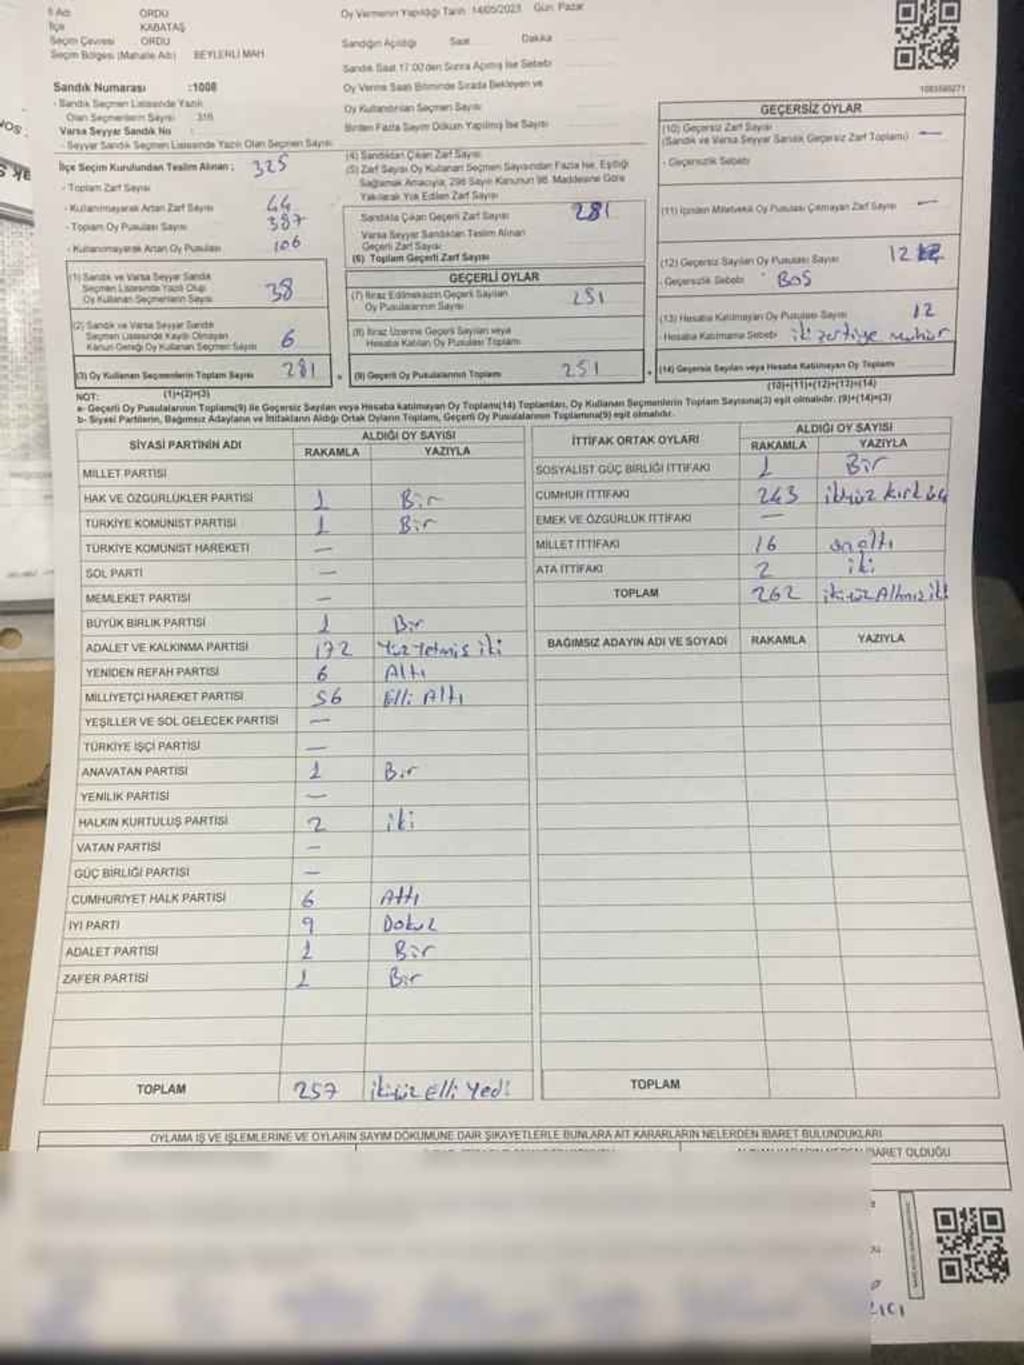 İl Adı ORDU
İlçe KABATAŞ
Seçim Çevresi ORDU
Seçim Bölgesi (Mahalle Adı) BEYLERLİ MAH.
Oy Vermenin Yapıldığı Tarih 14/05/2023 Gün Pazar
Sandığın Açıldığı Saat Dakika
Sandık Saat 17:00'den Sonra Açılmış İse Sebebi
Oy Verme Saati Bitiminde Sırada Bekleyen ve
Oy Kullandırılan Seçmen Sayısı
Birden Fazla Sayım Döküm Yapılmış İse Sayısı
Sandık Numarası :1008
- Sandık Seçmen Listesinde Yazılı
Olan Seçmenlerin Sayısı 316
Varsa Seyyar Sandık No :
- Seyyar Sandık Seçmen Listesinde Yazılı Olan Seçmen Sayısı
İlçe Seçim Kurulundan Teslim Alınan ; 325
- Toplam Zarf Sayısı
- Kullanılmayarak Artan Zarf Sayısı 44
- Toplam Oy Pusulası Sayısı 387
- Kullanılmayarak Artan Oy Pusulası 106
(1) Sandık ve Varsa Seyyar Sandık
Seçmen Listesinde Yazılı Olup
Oy Kullanan Seçmenlerin Sayısı 38
(2) Sandık ve Varsa Seyyar Sandık
Seçmen Listesinde Kaydı Olmayan
Kanun Gereği Oy Kullanan Seçmen Sayısı 6
(3) Oy Kullanan Seçmenlerin Toplam Sayısı 281
(1)+(2)=(3)
(4) Sandıktan Çıkan Zarf Sayısı
(5) Zarf Sayısı Oy Kullanan Seçmen Sayısından Fazla İse, Eşitliği
Sağlamak Amacıyla, 298 Sayılı Kanunun 98. Maddesine Göre
Yakılarak Yok Edilen Zarf Sayısı
Sandıkta Çıkan Geçerli Zarf Sayısı 281
Varsa Seyyar Sandıktan Teslim Alınan
Geçerli Zarf Sayısı
(6) Toplam Geçerli Zarf Sayısı
GEÇERLİ OYLAR
(7) İtiraz Edilmeksizin Geçerli Sayılan
Oy Pusulalarının Sayısı 251
(8) İtiraz Üzerine Geçerli Sayılan veya
Hesaba Katılan Oy Pusulası Toplamı
(9) Geçerli Oy Pusulalarının Toplamı 251
1083580271
GEÇERSİZ OYLAR
(10) Geçersiz Zarf Sayısı
(Sandık ve Varsa Seyyar Sandık Geçersiz Zarf Toplamı) —
- Geçersizlik Sebebi
(11) İçinden Milletvekili Oy Pusulası Çıkmayan Zarf Sayısı —
(12) Geçersiz Sayılan Oy Pusulası Sayısı 12
- Geçersizlik Sebebi BOŞ
(13) Hesaba Katılmayan Oy Pusulası Sayısı 12
- Hesaba Katılmama Sebebi iki mühür
(14) Geçersiz Sayılan veya Hesaba Katılmayan Oy Toplamı
(10)+(11)+(12)+(13)=(14)
NOT:
a- Geçerli Oy Pusulalarının Toplamı(9) ile Geçersiz Sayılan veya Hesaba katılmayan Oy Toplamı(14) Toplamları, Oy Kullanan Seçmenlerin Toplam Sayısına(3) eşit olmalıdır. (9)+(14)=(3)
b- Siyasi Partilerin, Bağımsız Adayların ve İttifakların Aldığı Ortak Oyların Toplamı, Geçerli Oy Pusulalarının Toplamına(9) eşit olmalıdır.
SİYASİ PARTİNİN ADI ALDIĞI OY SAYISI
RAKAMLA YAZIYLA
MİLLET PARTİSİ
HAK VE ÖZGÜRLÜKLER PARTİSİ 1 Bir
TÜRKİYE KOMÜNİST PARTİSİ 1 Bir
TÜRKİYE KOMÜNİST HAREKETİ —
SOL PARTİ —
MEMLEKET PARTİSİ —
BÜYÜK BİRLİK PARTİSİ 1 Bir
ADALET VE KALKINMA PARTİSİ 172 Yüz Yetmiş iki
YENİDEN REFAH PARTİSİ 6 Altı
MİLLİYETÇİ HAREKET PARTİSİ 56 Elli Altı
YEŞİLLER VE SOL GELECEK PARTİSİ —
TÜRKİYE İŞÇİ PARTİSİ —
ANAVATAN PARTİSİ 1 Bir
YENİLİK PARTİSİ —
HALKIN KURTULUŞ PARTİSİ 2 iki
VATAN PARTİSİ —
GÜÇ BİRLİĞİ PARTİSİ —
CUMHURİYET HALK PARTİSİ 6 Altı
İYİ PARTİ 9 Dokuz
ADALET PARTİSİ 1 Bir
ZAFER PARTİSİ 1 Bir
TOPLAM 257 ikiyüz Elli Yedi
İTTİFAK ORTAK OYLARI ALDIĞI OY SAYISI
RAKAMLA YAZIYLA
SOSYALİST GÜÇ BİRLİĞİ İTTİFAKI 1 Bir
CUMHUR İTTİFAKI 243 ikiyüz kırk üç
EMEK VE ÖZGÜRLÜK İTTİFAKI —
MİLLET İTTİFAKI 16 on altı
ATA İTTİFAKI 2 iki
TOPLAM 262 ikiyüz Altmış iki
BAĞIMSIZ ADAYIN ADI VE SOYADI RAKAMLA YAZIYLA
TOPLAM
OYLAMA İŞ VE İŞLEMLERİNE VE OYLARIN SAYIM DÖKÜMÜNE DAİR ŞİKAYETLERLE BUNLARA AİT KARARLARIN NELERDEN İBARET BULUNDUKLARI
İBARET OLDUĞU